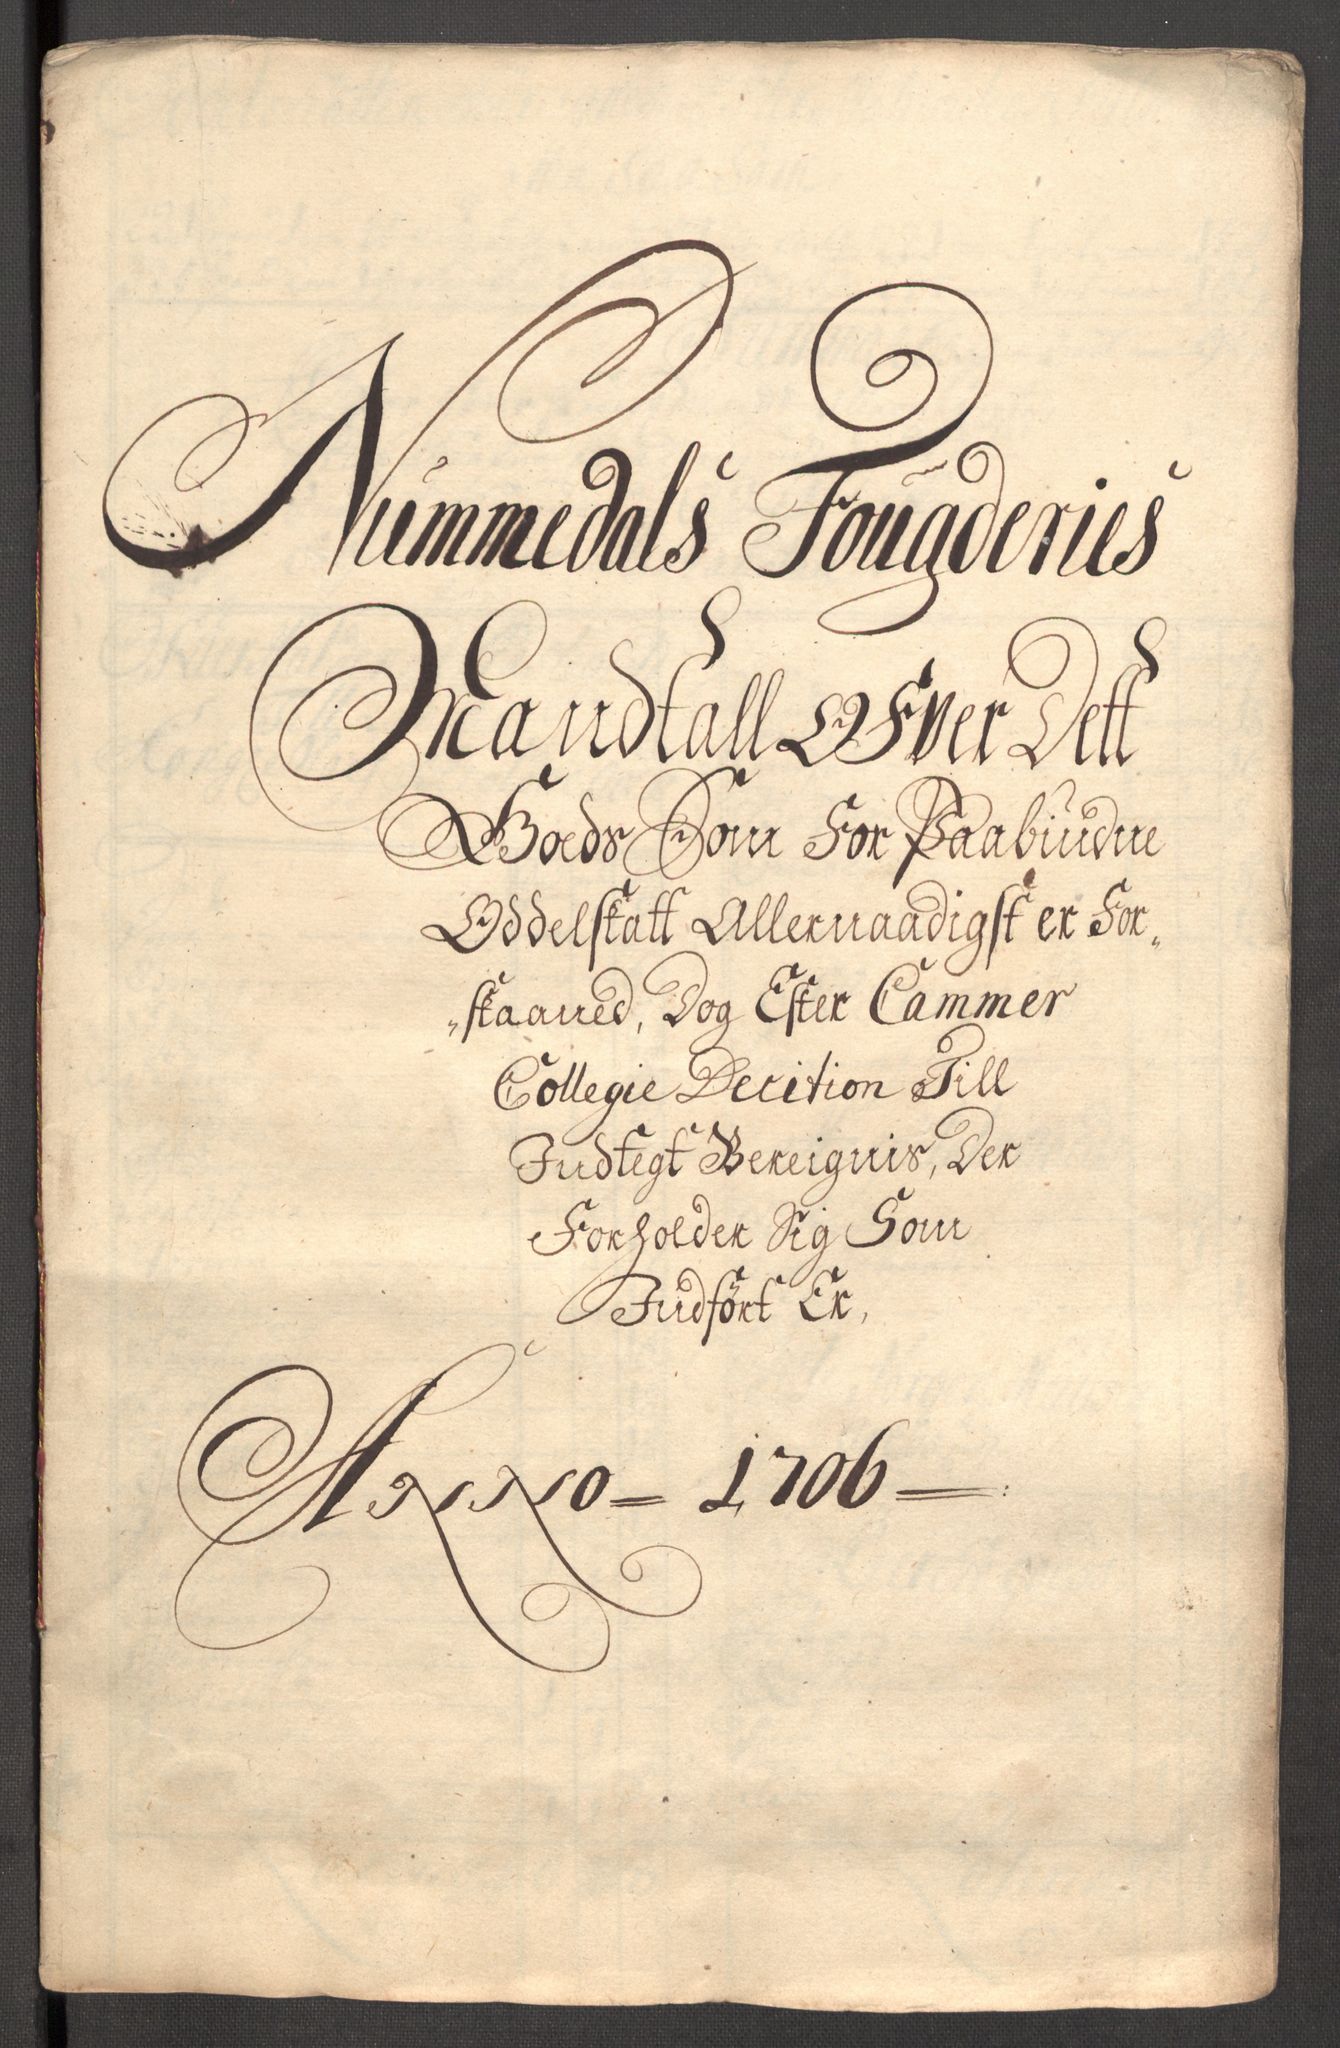 Nummedals Fougderies
Mandtall Ofver Dett
Goeds Som For Paabudne
Oddelskatt Allernaadigst er For„
„skaaned, Dog Efter Cammer
Collegie Decition Till
Indtegt Bereignis, Der
Forholder Sig Som
Indført Er,
Anno = 1706